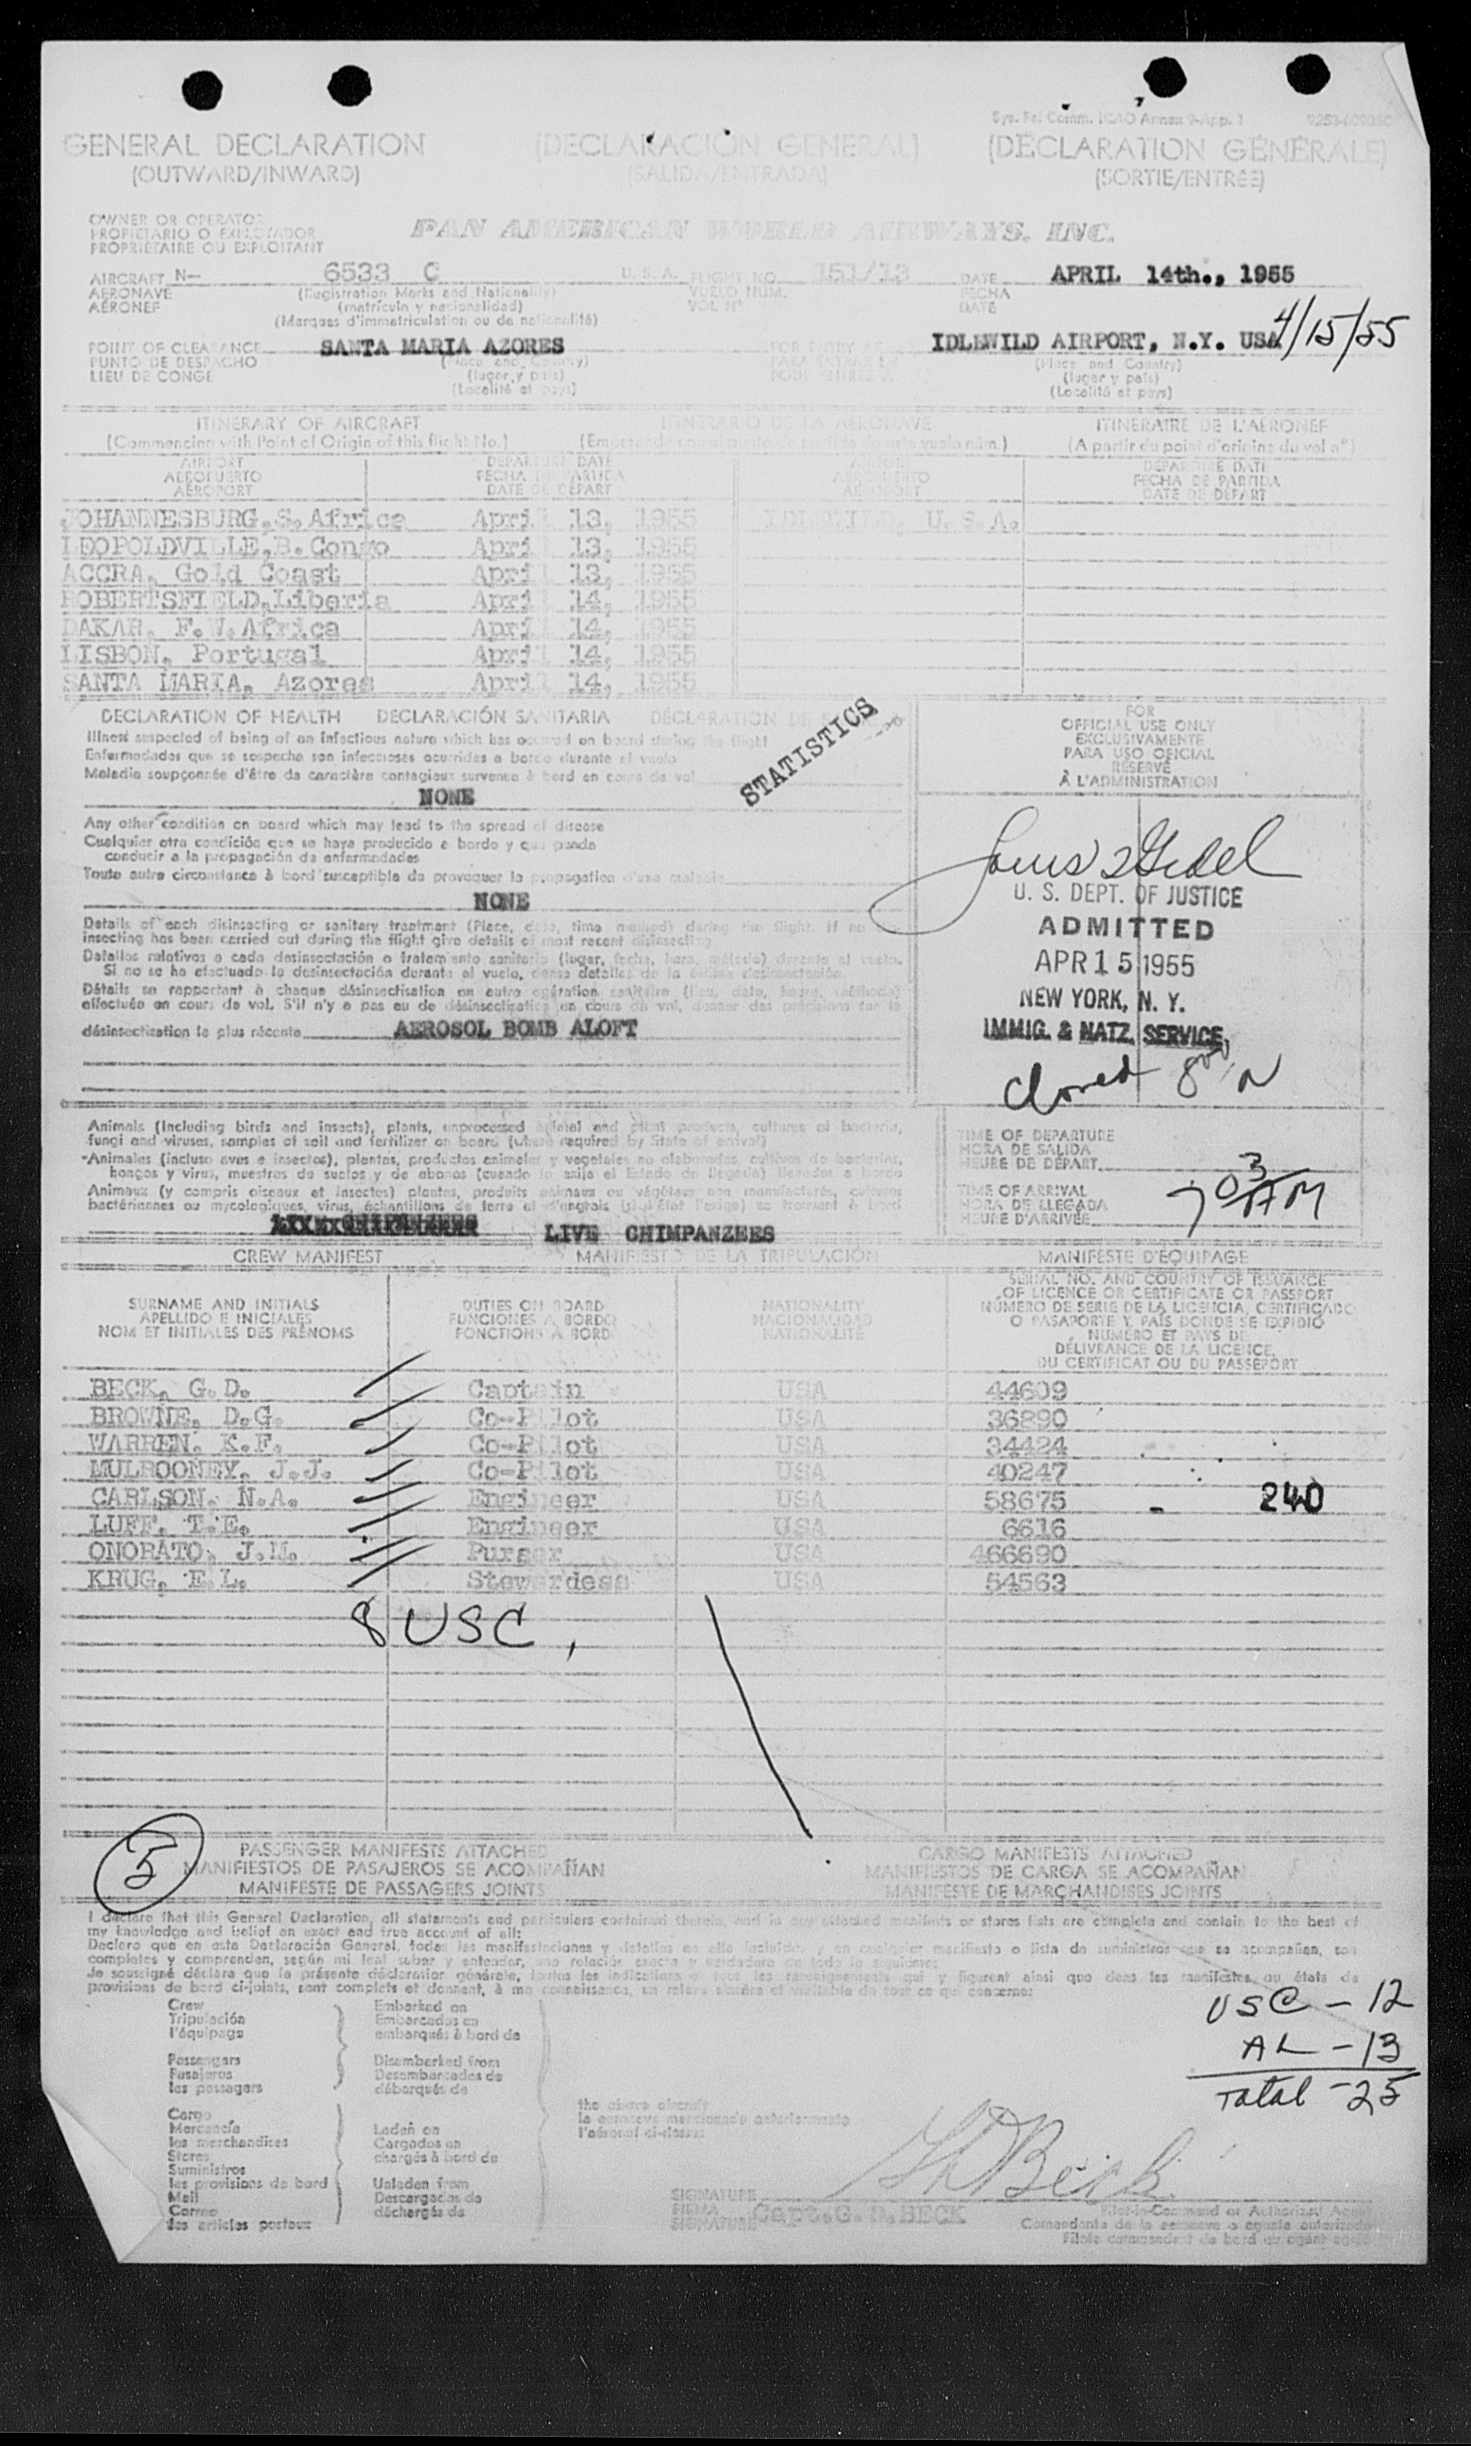 GENERAL DECLARATION (DECLARACIÓN GENERAL) (DÉCLARATION GÉNÉRALE)
(OUTWARD/INWARD) (SALIDA/ENTRADA) (SORTIE/ENTRÉE)
OWNER OR OPERATOR
PROPIETARIO O EXPLOTADOR
PROPRIÉTAIRE OU EXPLOITANT
PAN AMERICAN WORLD AIRWAYS, INC.
AIRCRAFT N— 6533 C U.S.A. FLIGHT NO. 151/13 DATE APRIL 14th., 1955
AERONAVE (Registration Marks and Nationality) VUELO NUM. FECHA
AÉRONEF (matrícula y nacionalidad) VOL Nº DATE
(Marques d'immatriculation ou de nationalité)
POINT OF CLEARANCE SANTA MARIA AZORES FOR ENTRY AT IDLEWILD AIRPORT, N.Y. USA 4/15/55
PUNTO DE DESPACHO (Place and Country) (Place and Country)
LIEU DE CONGÉ (lugar y país) (lugar y país)
(Localité et pays) (Localité et pays)
ITINERARY OF AIRCRAFT ITINERARIO DE LA AERONAVE ITINÉRAIRE DE L'AÉRONEF
(Commencing with Point of Origin of this flight No.) (A partir du point d'origine du vol nº)
AIRPORT DEPARTURE DATE AIRPORT DEPARTURE DATE
AEROPUERTO FECHA DE PARTIDA AEROPUERTO FECHA DE PARTIDA
AÉROPORT DATE DE DÉPART AÉROPORT DATE DE DÉPART
JOHANNESBURG, S. Africa April 13, 1955 IDLEWILD, U.S.A.
LEOPOLDVILLE, B. Congo April 13, 1955
ACCRA, Gold Coast April 13, 1955
ROBERTSFIELD, Liberia April 14, 1955
DAKAR, F.W. Africa April 14, 1955
LISBON, Portugal April 14, 1955
SANTA MARIA, Azores April 14, 1955
DECLARATION OF HEALTH DECLARACIÓN SANITARIA DÉCLARATION DE
Illness suspected of being of an infectious nature which has occurred on board during the flight
Enfermedades que se sospecha son infecciosas ocurridas a bordo durante el vuelo
Maladie soupçonnée d'être de caractère contagieux survenue à bord en cours de vol
NONE
STATISTICS
Any other condition on board which may lead to the spread of disease
Cualquier otra condición que se haya producido a bordo y que pueda
conducir a la propagación de enfermedades
Toute autre circonstance à bord susceptible de provoquer la propagation d'une maladie
NONE
Details of each disinsecting or sanitary treatment (Place, date, time, method) during the flight. If no
insecting has been carried out during the flight give details of most recent disinsecting
Detalles relativos a cada desinsectación o tratamiento sanitario (lugar, fecha, hora, método) durante el vuelo.
Si no se ha efectuado la desinsectación durante el vuelo, dense detalles de la última desinsectación.
Détails se rapportant à chaque désinsectisation ou autre opération sanitaire (lieu, date, heure, méthode)
effectuée en cours de vol. S'il n'y a pas eu de désinsectisation en cours de vol, donner des précisions sur la
désinsectisation la plus récente AEROSOL BOMB ALOFT
FOR
OFFICIAL USE ONLY
EXCLUSIVAMENTE
PARA USO OFICIAL
RÉSERVÉ
À L'ADMINISTRATION
U. S. DEPT. OF JUSTICE
ADMITTED
APR 15 1955
NEW YORK, N. Y.
IMMIG. & NATZ. SERVICE
Closed 8 N
Animals (Including birds and insects), plants, unprocessed animal and plant products, cultures of bacteria,
fungi and viruses, samples of soil and fertilizer on board (where required by State of arrival)
Animales (incluso aves e insectos), plantas, productos animales y vegetales no elaborados, cultivos de bacterias,
hongos y virus, muestras de suelos y de abonos (cuando lo exija el Estado de llegada) llevados a bordo
Animaux (y compris oiseaux et insectes) plantes, produits animaux ou végétaux non manufacturés, cultures
bactériennes ou mycologiques, virus, échantillons de terre et d'engrais (si l'État l'exige) se trouvant à bord
LIVE CHIMPANZEES
TIME OF DEPARTURE
HORA DE SALIDA
HEURE DE DÉPART
TIME OF ARRIVAL
HORA DE LLEGADA
HEURE D'ARRIVÉE
7 03 AM
CREW MANIFEST MANIFIESTO DE LA TRIPULACIÓN MANIFESTE D'ÉQUIPAGE
SURNAME AND INITIALS
APELLIDO E INICIALES
NOM ET INITIALES DES PRÉNOMS
DUTIES ON BOARD
FUNCIONES A BORDO
FONCTIONS A BORD
NATIONALITY
NACIONALIDAD
NATIONALITÉ
SERIAL NO. AND COUNTRY OF ISSUANCE
OF LICENCE OR CERTIFICATE OR PASSPORT
NUMERO DE SERIE DE LA LICENCIA, CERTIFICADO
O PASAPORTE Y PAÍS DONDE SE EXPIDIÓ
NUMÉRO ET PAYS DE
DÉLIVRANCE DE LA LICENCE,
DU CERTIFICAT OU DU PASSEPORT
BECK, G.D. Captain USA 44609
BROWNE, D.G. Co-Pilot USA 36890
WARREN, K.F. Co-Pilot USA 34424
MULROONEY, J.J. Co-Pilot USA 40247
CARLSON, N.A. Engineer USA 58675 - 240
LUFF, T.E. Engineer USA 6616
ONORATO, J.M. Purser USA 466690
KRUG, E.L. Stewardess USA 54563
8 USC
5
PASSENGER MANIFESTS ATTACHED CARGO MANIFESTS ATTACHED
MANIFIESTOS DE PASAJEROS SE ACOMPAÑAN MANIFIESTOS DE CARGA SE ACOMPAÑAN
MANIFESTE DE PASSAGERS JOINTS MANIFESTE DE MARCHANDISES JOINTS
I declare that this General Declaration, all statements and particulars contained therein, and in any attached manifests or stores lists are complete and contain to the best of
my knowledge and belief an exact and true account of all:
Declaro que en esta Declaración General, todas las manifestaciones y detalles en ella incluidos, y en cualquier manifiesto o lista de suministros que se acompañan, son
completos y comprenden, según mi leal saber y entender, una relación exacta y verdadera de todo lo siguiente:
Je soussigné déclare que la présente déclaration générale, toutes les indications et tous les renseignements qui y figurent ainsi que dans les manifestes ou états de
provisions de bord ci-joints, sont complets et donnent, à ma connaissance, un relevé sincère et véritable de tout ce qui concerne:
Crew
Tripulación
l'équipage
Passengers
Pasajeros
les passagers
Embarked on
Embarcados en
embarqués à bord de
Disembarked from
Desembarcados de
débarqués de
Cargo
Mercancía
les merchandices
Stores
Suministros
les provisions de bord
Mail
Correo
des articles postaux
Laden on
Cargados en
chargés à bord de
Unladen from
Descargados de
déchargés de
the above aircraft
la aeronave mencionada anteriormente
l'aéronef ci-dessus
USC - 12
AL - 13
Total - 25
GDBeck
SIGNATURE
FIRMA
SIGNATURE
Capt. G. D. BECK
Pilot-in-Command or Authorized Agent
Comandante de la aeronave o agente autorizado
Pilote commandant de bord ou agent